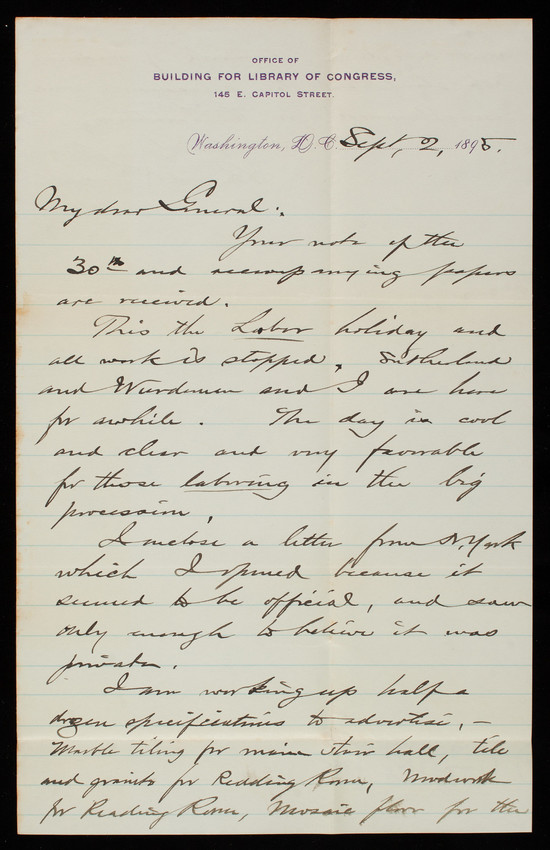 OFFICE OF
BUILDING FOR LIBRARY OF CONGRESS,
145 E. CAPITOL STREET.
Washington, D. C. Sept, 2, 1895.
My dear General:
Your note of the
30th and accompanying papers
are received.
This the Labor holiday and
all work is stopped. Sutherland
and Wurdeman and I are here
for awhile. The day is cool
and clear and very favorable
for those laboring in the big
procession.
I enclose a letter from N. York
which I opened because it
seemed to be official, and saw
only enough to believe it was
private.
I am working up half a
dozen specifications to advertise, —
Marble tiling for main stair hall, tile
and granite for Redding Room, Woodwork
for Reading Room, Mosaic floor for the